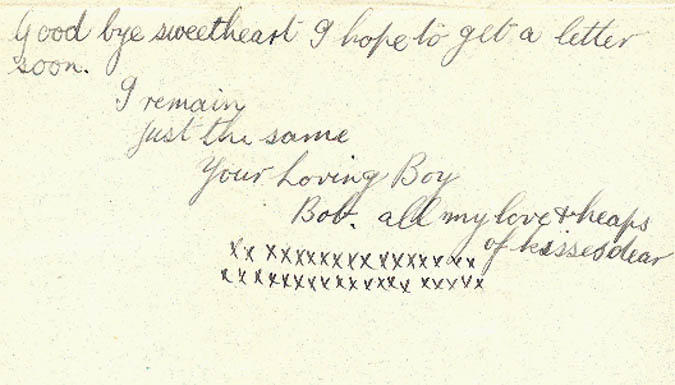 Good bye sweetheart I hope to get a letter
soon.
I remain
just the same
Your Loving Boy
Bob. all my love & heaps
of kisses dear
xx xxxxxxxxxxxxxxxx
xxxxxxxxxxxxxxx xxxxx